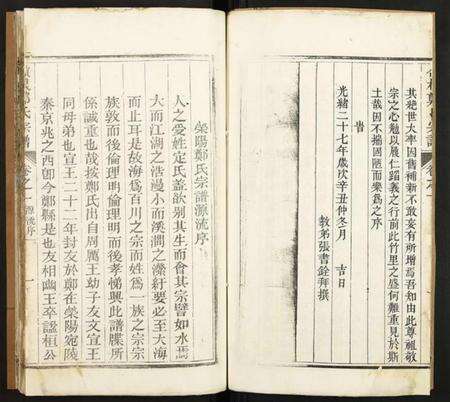 其絕世大率因舊補新不敢妄有所增焉吾知由此尊祖敬
宗之心勉以展仁蹈義之行前此竹里之盛何難重見於斯
土哉因不揣固陋而樂爲之序
旹
光緒二十七年歲次辛丑仲冬月 吉日
教弟張書銓拜撰
滎陽鄭氏宗譜源流序
人之受姓定氏蓋欲別其生而會其宗譬如水焉
大而江湖之浩漫小而溪澗之瀠紆要必至大海
而止耳是故海爲百川之宗而姓爲一族之宗宗
族敦而後倫理明倫理明而後孝悌興此譜牒所
係誠重也哉按鄭氏出自周厲王幼子友文宣王
同母弟也宣王二十二年封友於鄭在滎陽宛陵
秦京兆之西卽今鄭縣是也友相幽王卒諡桓公
鄭氏宗譜
卷之一
源流序
一